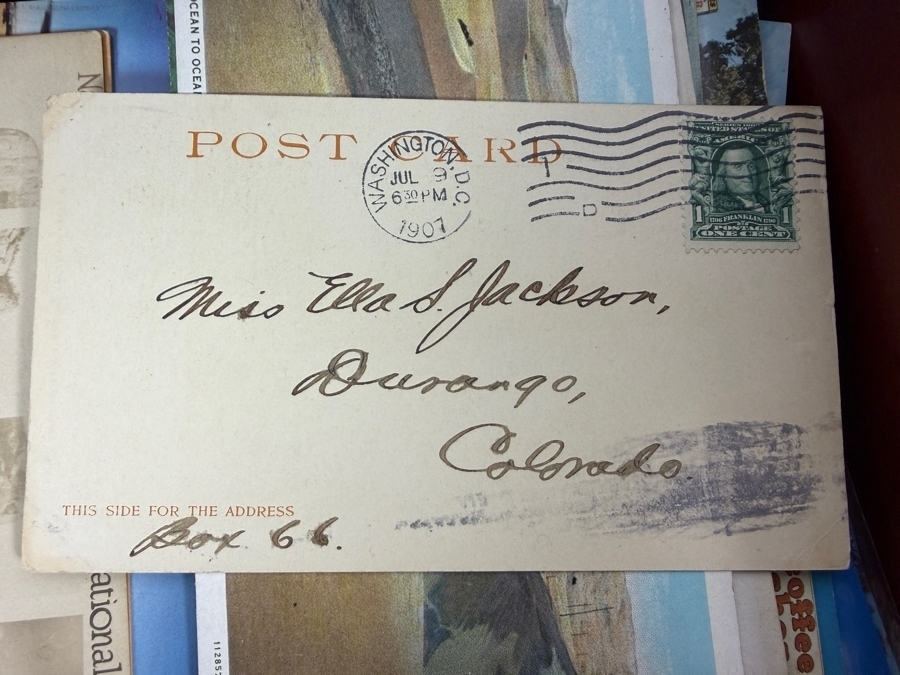 OCEAN TO OCEA
POST CARD
WASHINGTON, D.C.
JUL 9
6 30 PM
1907
D
SERIES 1902
UNITED STATES OF
AMERICA
1 1706 FRANKLIN 1790 1
POSTAGE
ONE CENT
Miss Ella S. Jackson,
Durango,
Colorado.
THIS SIDE FOR THE ADDRESS
Box 66.
ational
11285
offee